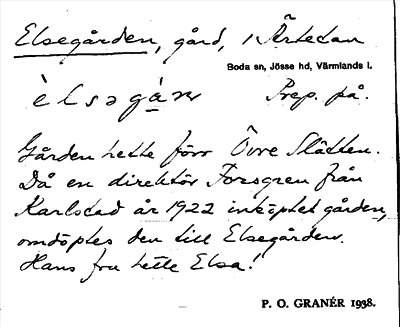 Elsegården, gård, i Ärtedan
Boda sn, Jösse hd, Värmlands l.
èlsəgàṇ Prep. på.
Gården hette förr Övre Slätten.
Då en direktör Forsgren från
Karlstad år 1922 inköptet gården,
omdöptes den till Elsegården.
Hans fru hette Elsa!
P. O. GRANÉR 1938.